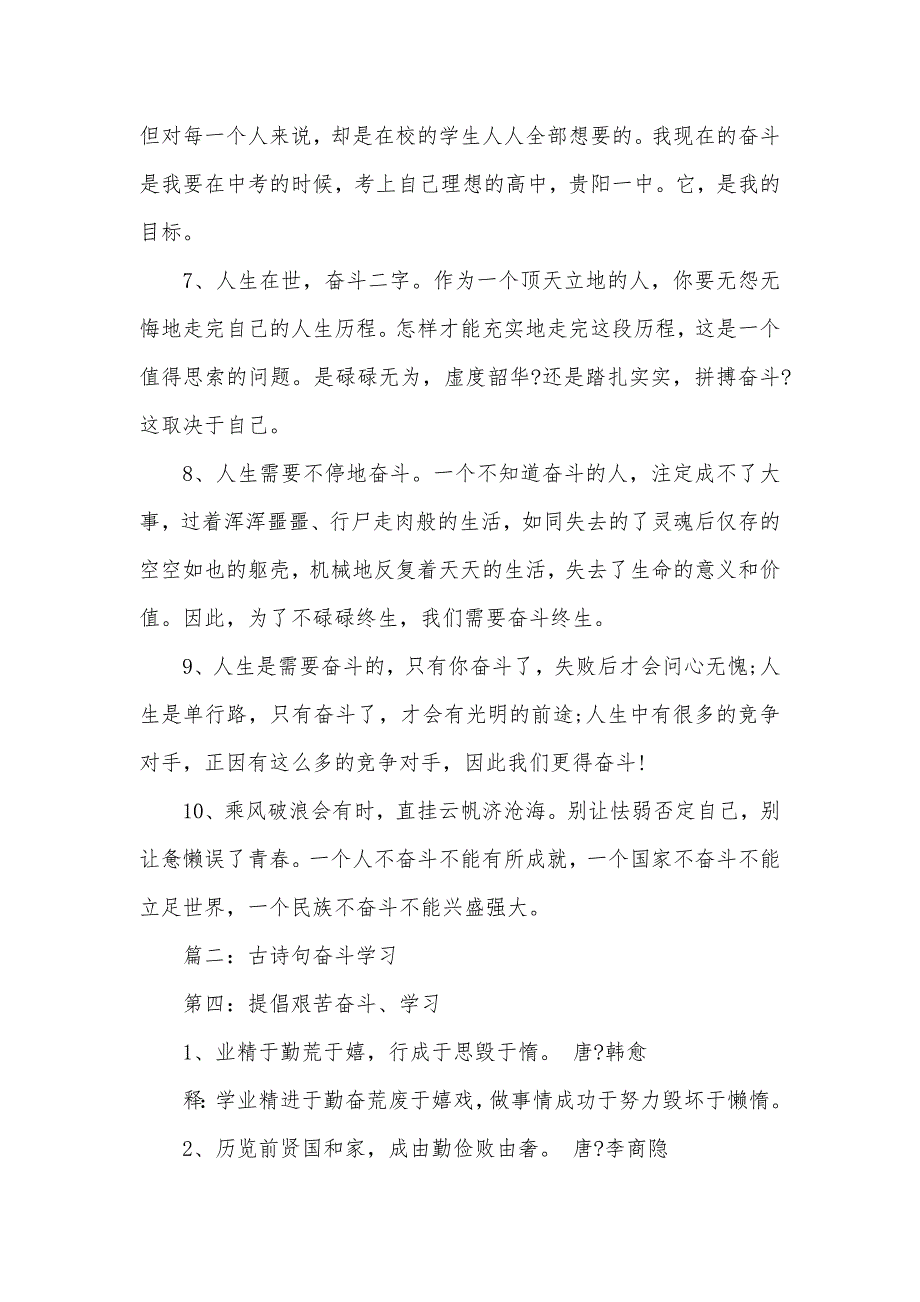 但对每一个人来说，却是在校的学生人人全部想要的。我现在的奋斗
是我要在中考的时候，考上自己理想的高中，贵阳一中。它，是我的
目标。
7、人生在世，奋斗二字。作为一个顶天立地的人，你要无怨无
悔地走完自己的人生历程。怎样才能充实地走完这段历程，这是一个
值得思索的问题。是碌碌无为，虚度韶华?还是踏扎实实，拼搏奋斗?
这取决于自己。
8、人生需要不停地奋斗。一个不知道奋斗的人，注定成不了大
事，过着浑浑噩噩、行尸走肉般的生活，如同失去的了灵魂后仅存的
空空如也的躯壳，机械地反复着天天的生活，失去了生命的意义和价
值。因此，为了不碌碌终生，我们需要奋斗终生。
9、人生是需要奋斗的，只有你奋斗了，失败后才会问心无愧;人
生是单行路，只有奋斗了，才会有光明的前途;人生中有很多的竞争
对手，正因有这么多的竞争对手，因此我们更得奋斗!
10、乘风破浪会有时，直挂云帆济沧海。别让怯弱否定自己，别
让惫懒误了青春。一个人不奋斗不能有所成就，一个国家不奋斗不能
立足世界，一个民族不奋斗不能兴盛强大。
篇二：古诗句奋斗学习
第四：提倡艰苦奋斗、学习
1、业精于勤荒于嬉，行成于思毁于惰。 唐?韩愈
释：学业精进于勤奋荒废于嬉戏，做事情成功于努力毁坏于懒惰。
2、历览前贤国和家，成由勤俭败由奢。 唐?李商隐